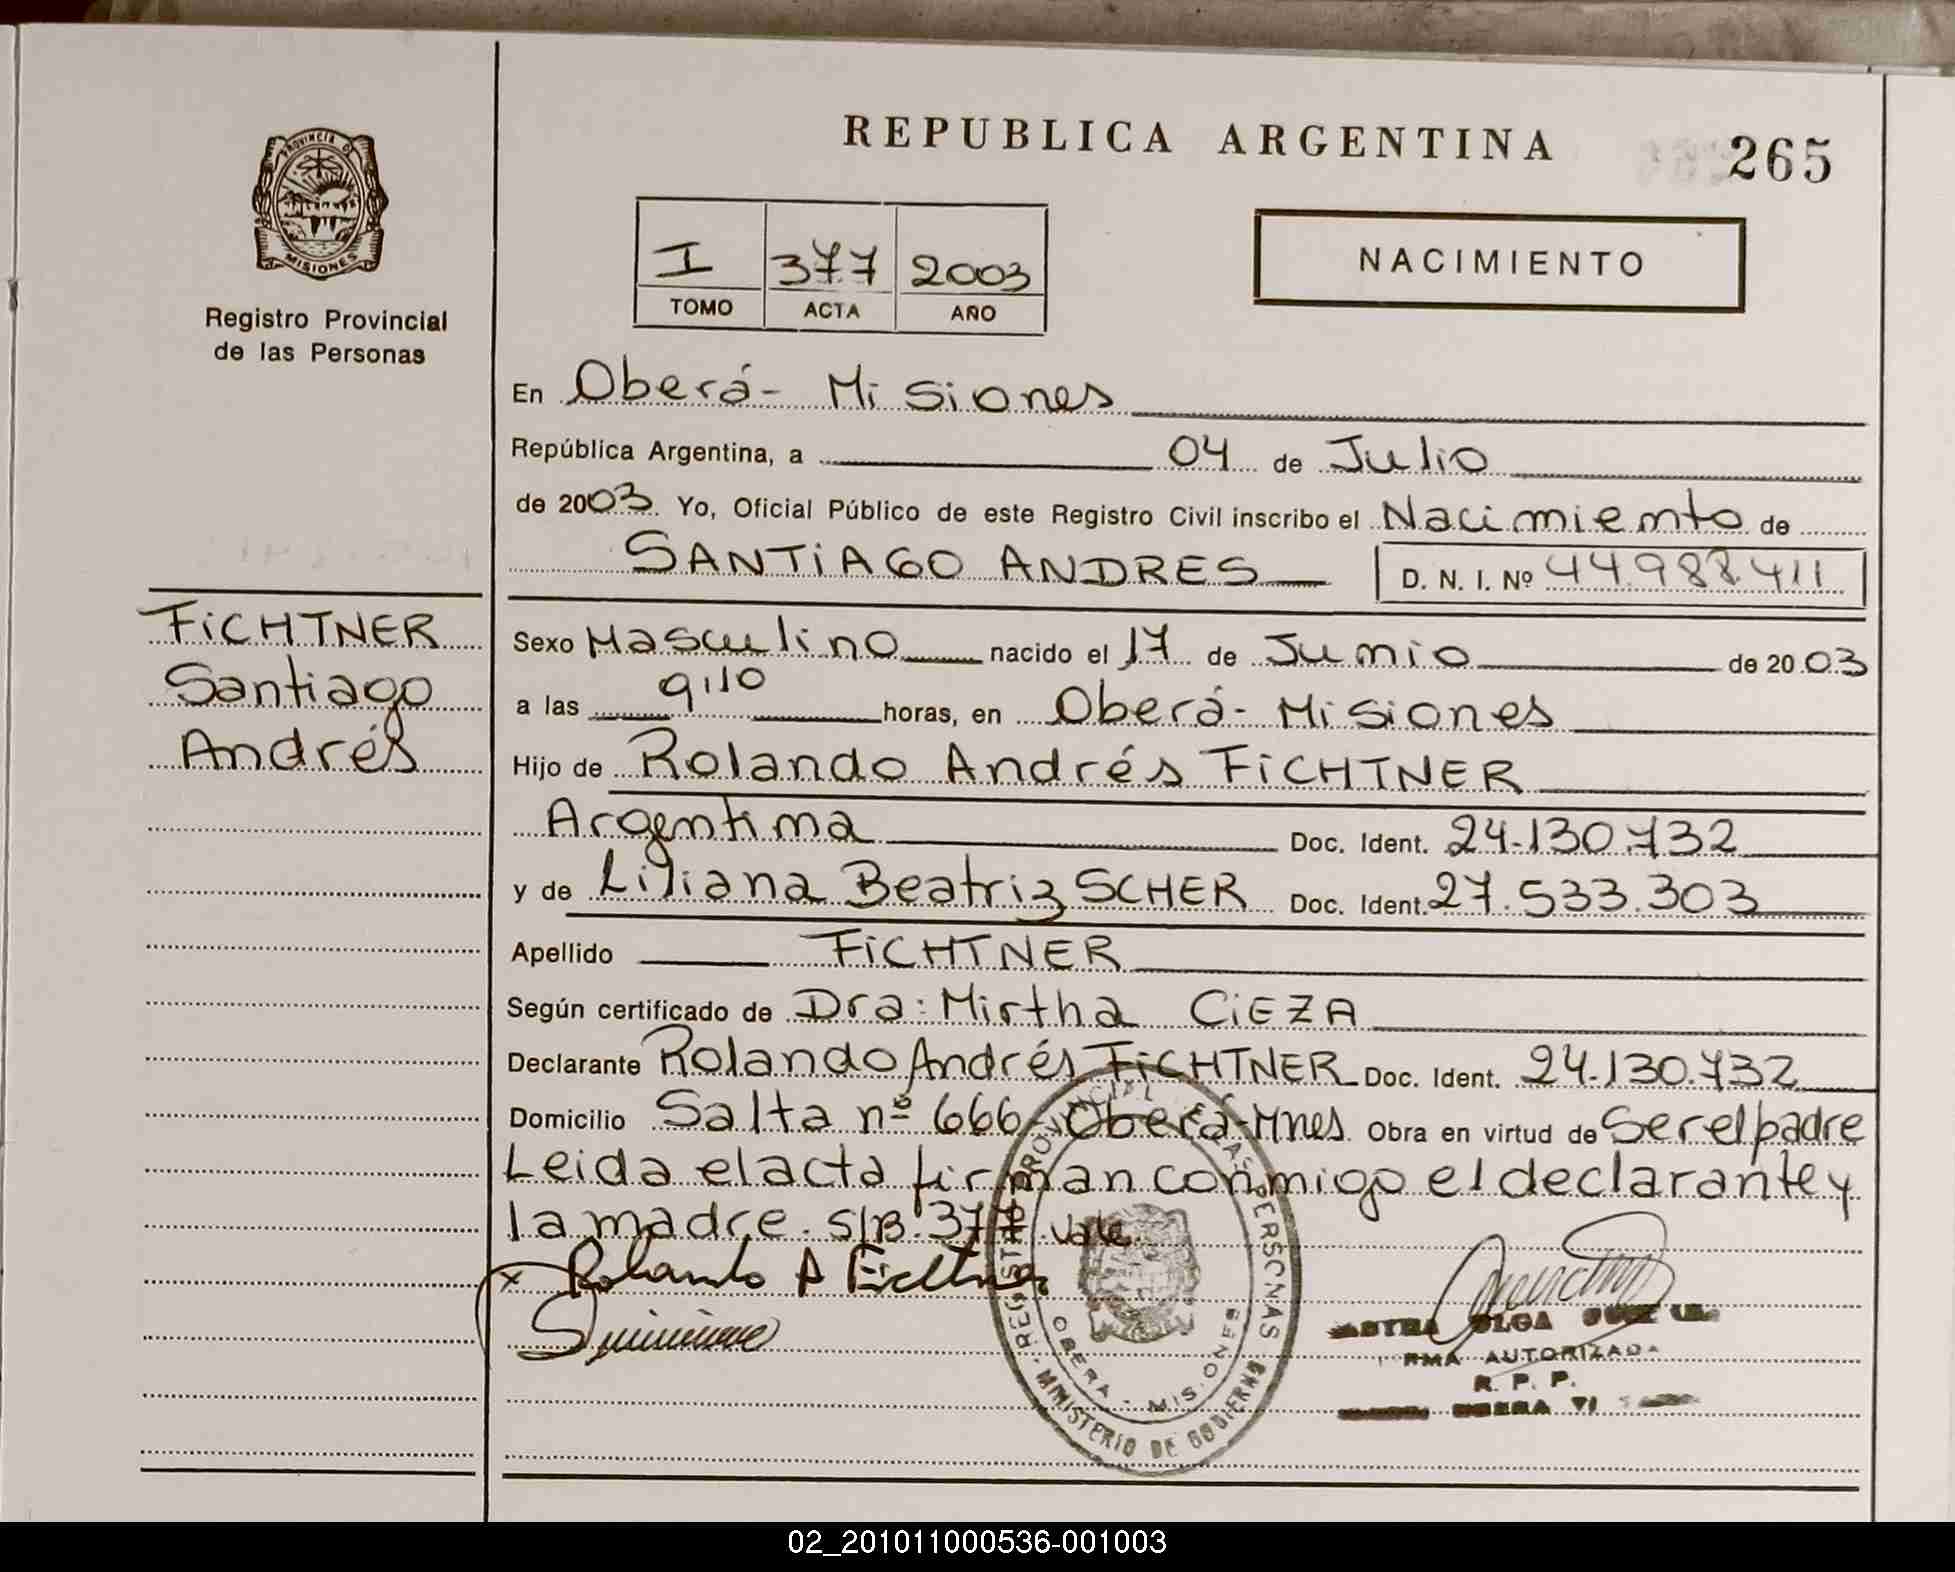 REPUBLICA ARGENTINA
265
PROVINCIA DE
MISIONES
Registro Provincial
de las Personas
I 377 2003
TOMO ACTA AÑO
NACIMIENTO
En Oberá - Misiones
República Argentina, a 04 de Julio
de 2003 Yo, Oficial Público de este Registro Civil inscribo el Nacimiento de
SANTIAGO ANDRES D. N. I. Nº 44.988.411
FICHTNER
Santiago
Andrés
Sexo Masculino nacido el 17 de Junio de 2003
a las 9,10 horas, en Oberá - Misiones
Hijo de Rolando Andrés FICHTNER
Argentina Doc. Ident. 24.130.732
y de Liliana Beatriz SCHER Doc. Ident. 27.533.303
Apellido FICHTNER
Según certificado de Dra: Mirtha CIEZA
Declarante Rolando Andrés FICHTNER Doc. Ident. 24.130.732
Domicilio Salta nº 666 - Oberá - Mnes Obra en virtud de Ser el padre
Leida el acta firman conmigo el declarante y
la madre. S/B. 377. Vale.
x Rolando A Fichtner
REGISTRO PROVINCIAL DE LAS PERSONAS
OBERA - MISIONES
MINISTERIO DE GOBIERNO
OLGA
FIRMA AUTORIZADA
R. P. P.
OBERA
02_201011000536-001003